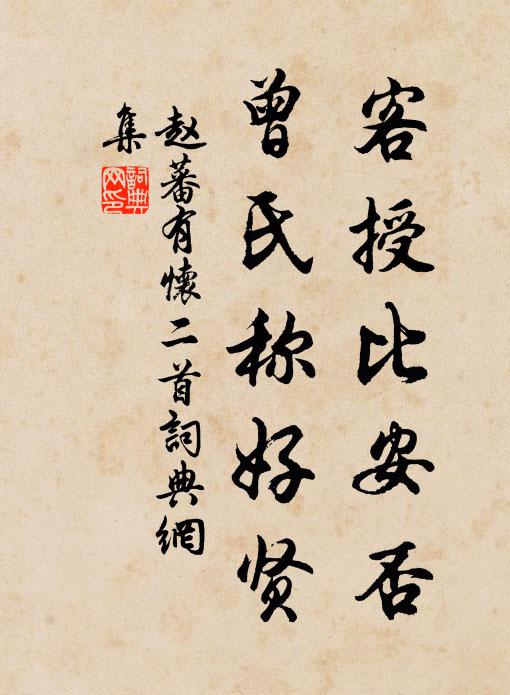 客授比安否
曾氏称好贤
赵蕃有懷二首詞典網
集
詞典
网印